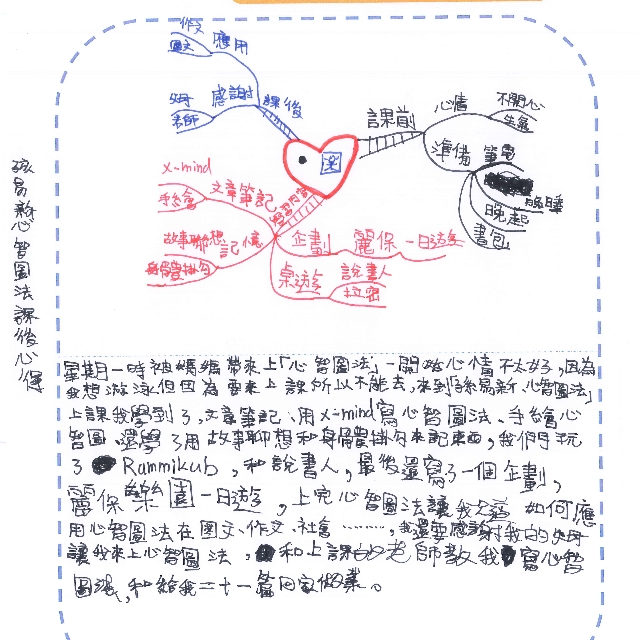 作文
圖文
應用
母
老師
感謝
課後
課前
心情
不開心
生氣
準備
筆電
晚睡
晚起
書包
x-mind
手繪
文章筆記
學習內容
故事聯想
身體掛勾
記憶
企劃
麗保
一日遊
桌遊
說書人
拉密
孫易新心智圖法課後心得
星期一時被媽媽帶來上「心智圖法」一開始心情不太好,因為
我想游泳但因為要來上課所以不能去,來到孫易新心智圖法
上課我學到了,文章筆記、用x-mind寫心智圖法、手繪心
智圖、還學了用故事聯想和身體掛勾來記東西,我們玩
了 Rammikub,和說書人,最後還寫了一個企劃,
麗保樂園一日遊,上完心智圖法讓我 如何應
用心智圖法在圖文、作文、社會………,我還要感謝我的父母
讓我來上心智圖法,和上課的老師教我寫心智
圖法,和給我二十一篇回家作業。